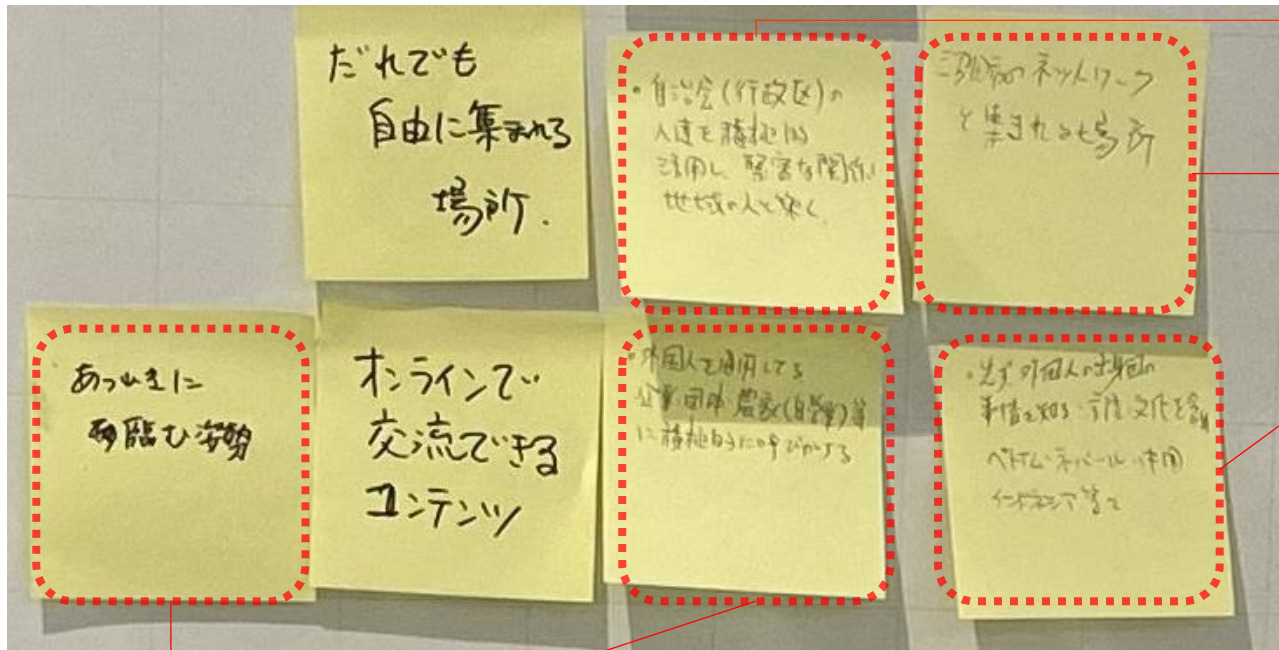 だれでも
自由に集まれる
場所.
・自治会(行政区)の
人達を積極的
活用し 緊密な関係
地域の人と築く
ネットワーク
と集まれる場所
あつまりに
臨む姿勢
オンラインで
交流できる
コンテンツ
・外国人を雇用してる
企業・団体・農家(自営業)等
に積極的に呼びかける
・先ず外国人の出身国の
事情を知る・言語・文化を含
ベトナム・ネパール・中国
インドネシア等々